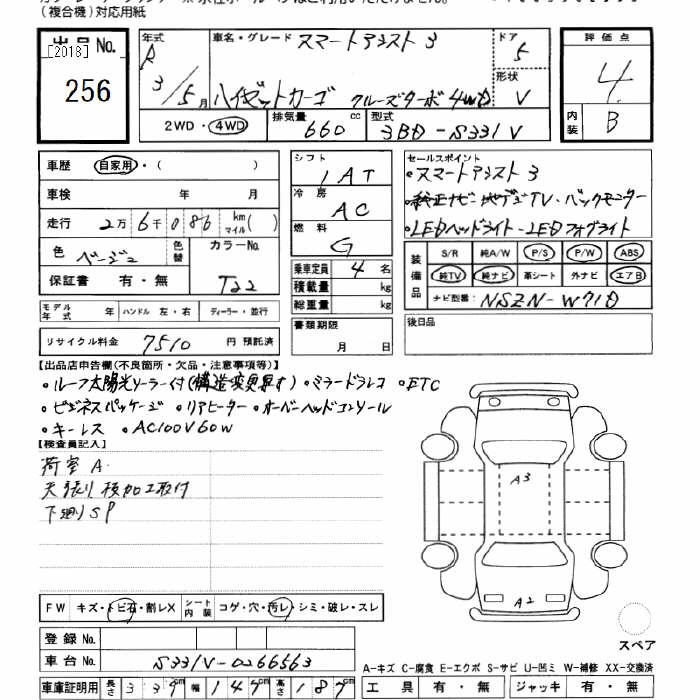 (複合機)対応用紙
出品No.
[2018]
256
年式 R 3/5月
車名・グレード スマートアシスト3
ハイゼットカーゴ クルーズターボ4WD
ドア 5
形状 V
2WD・4WD
排気量 660 cc
型式 3BD-S331V
評価点 4
内装 B
車歴 自家用・( )
車検 年 月
走行 2万6千086 km マイル( )
色 ベージュ
色替
カラーNo. T22
保証書 有・無
シフト 1AT
冷房 AC
燃料 G
乗車定員 4名
積載量 kg
総重量 kg
書類期限 月 日
セールスポイント
・スマートアシスト3
・純正ナビ・地デジTV・バックモニター
・LEDヘッドライト・LEDフォグライト
装備品
S/R 純A/W P/S P/W ABS
純TV 純ナビ 革シート 外ナビ エアB
ナビ型番: NSZN-W71D
後日品
モデル年式 年 ハンドル 左・右 ディーラー・並行
リサイクル料金 7510 円 預託済
【出品店申告欄(不良箇所・欠品・注意事項等)】
・ルーフ太陽光ソーラー付(構造変更要す) ・ミラードラレコ ・ETC
・ビジネスパッケージ ・リアヒーター ・オーバーヘッドコンソール
・キーレス ・AC100V60W
【検査員記入】
荷室A
天張り 後加工取付
下廻りSP
A3
A2
FW キズ・トビ石・割レX シート内装 コゲ・穴・汚レ・シミ・破レ・スレ
登録No.
車台No. S331V-0266563
スペア
A-キズ C-腐食 E-エクボ S-サビ U-凹ミ W-補修 XX-交換済
車庫証明用 長さ 339cm 幅 147cm 高さ 187cm
工具 有・無 ジャッキ 有・無